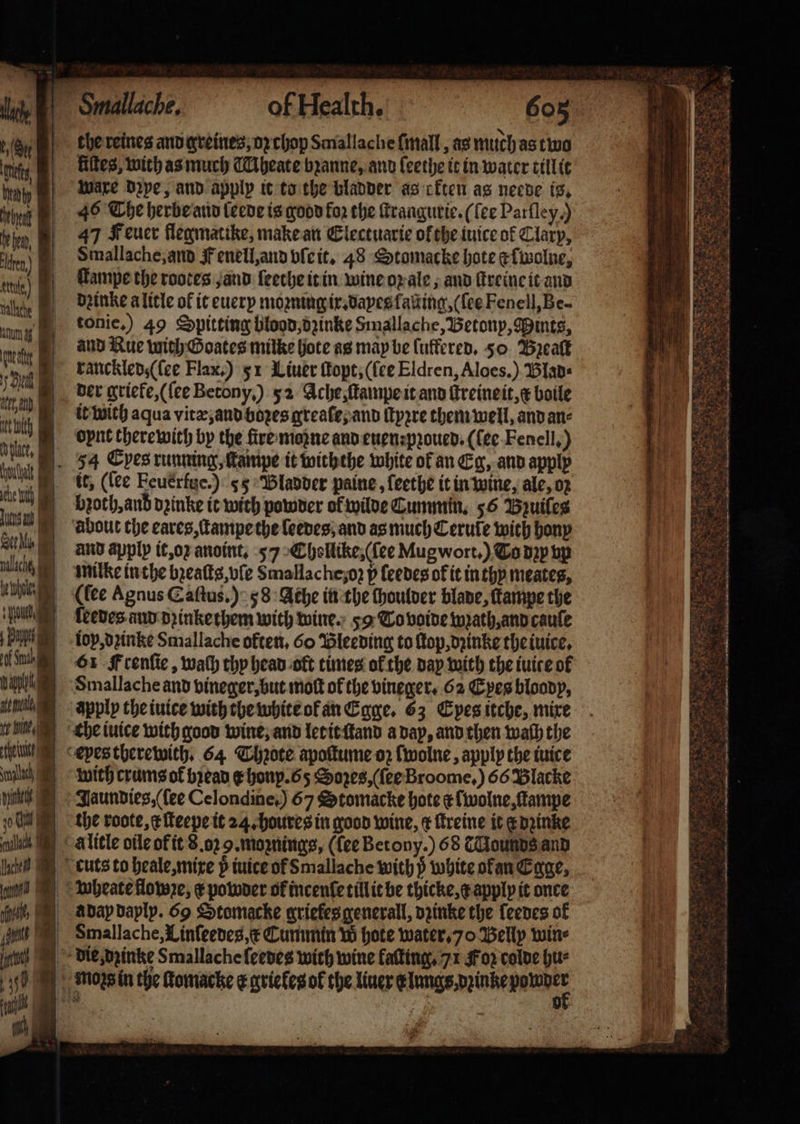 Smallache. of Health. 605
the reines and greines, or chop Smallache small, as much as two
fistes, with as much Wheate branne, and seethe it in water till it
ware drye, and apply it to the bladder as often as neede is.
46 The herbe and seede is good for the strangurie. (see Parsley.)
47 Feuer flegmatike, make an Electuarie of the iuice of Clary,
Smallache, and Fenell, and vse it. 48 Stomacke hote & swolne,
stampe the rootes, and seethe it in wine or ale, and streine it and
drinke a litle of it euery morning ix. dayes fasting, (see Fenell, Be-
tonie.) 49 Spitting blood, drinke Smallache, Betony, Mints,
and Rue with Goates milke hote as may be suffered. 50 Breast
ranckled, (see Flax.) 51 Liuer stopt, (see Eldren, Aloes.) Blad-
der griefe, (see Betony,) 52 Ache, stampe it and streine it, & boile
it with aqua vitæ, and bores grease, and styrre them well, and an-
oynt therewith by the fire morne and euen: proued. (see Fenell,)
54 Eyes running, stampe it with the white of an Eg, and apply
it, (see Feuerfue.) 55 Bladder paine, seethe it in wine, ale, or
broth, and drinke it with powder of wilde Cummin. 56 Bruises
about the eares, stampe the seedes, and as much Ceruse with hony
and apply it, or anoint. 57 Chollike, (see Mugwort.) To dry vp
milke in the breasts, vse Smallache, or þ seedes of it in thy meates,
(see Agnus Castus.) 58 Ache in the shoulder blade, stampe the
seedes and drinke them with wine. 59 To voide wrath, and cause
ioy, drinke Smallache often. 60 Bleeding to stop, drinke the iuice.
61 Frensie, wash thy head oft times of the day with the iuice of
Smallache and vineger, but most of the vineger. 62 Eyes bloody,
apply the iuice with the white of an Egge. 63 Eyes itche, mixe
the iuice with good wine, and let it stand a day, and then wash the
eyes therewith. 64 Throte apostume or swolne, apply the iuice
with crums of bread & hony. 65 Sores, (see Broome,) 66 Blacke
Jaundies, (see Celondine,) 67 Stomacke hote & swolne, stampe
the roote, & steepe it 24. houres in good wine, & streine it & drinke
a litle oile of it 8. or 9. mornings, (see Betony.) 68 Wounds and
cuts to heale, mixe þ iuice of Smallache with þ white of an Egge,
wheate flowre, & powder of incense till it be thicke, & apply it once
a day dayly. 69 Stomacke griefes generall, drinke the seedes of
Smallache, Linseedes, & Cummin w hote water. 70 Belly win-
die, drinke Smallache seedes with wine fasting. 71 For colde hu-
mors in the stomacke & griefes of the liuer & lungs, drinke powder
of